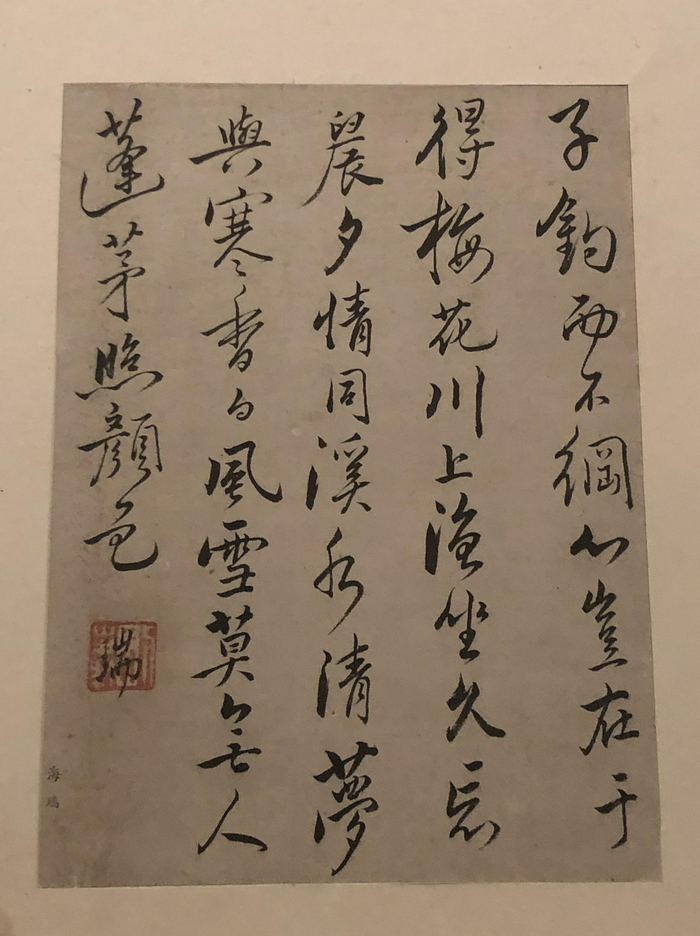 子釣而不綱心豈在于
得梅花川上漁坐久忘
晨夕情同溪水清夢
與寒香白風雪莫人
蓬茅照顏色
瑞
海瑞